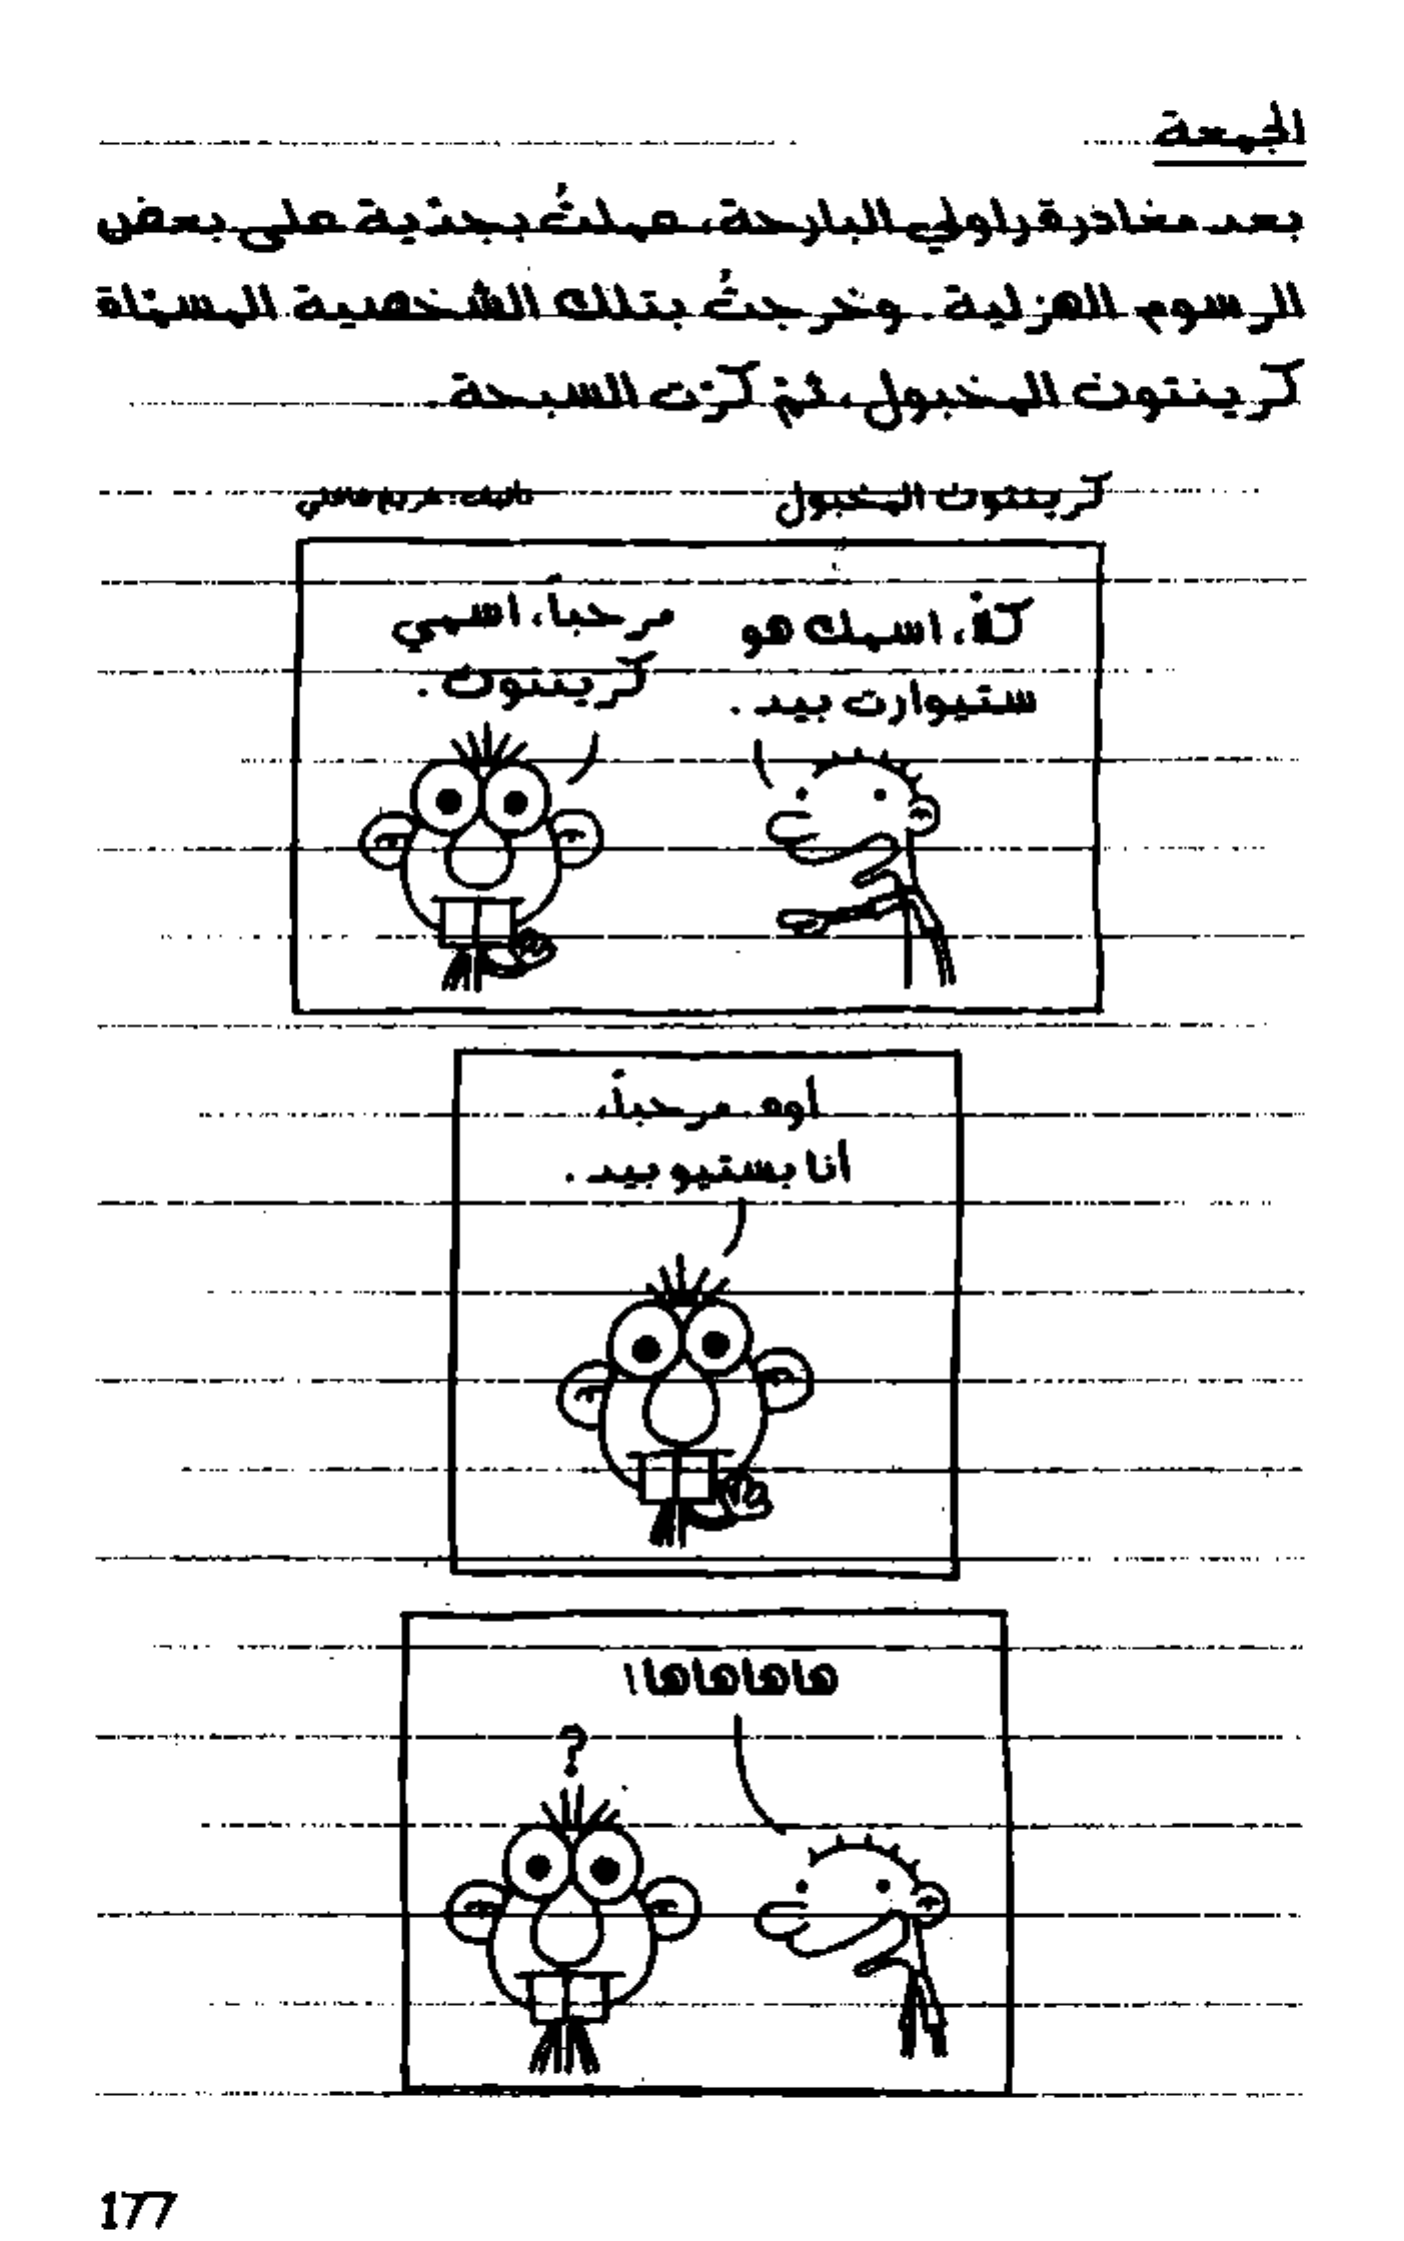 الجمعة
بعد مغادرة راولي البارحة، عملتُ بجدّية على بعض
الرسوم الهزلية. وخرجتُ بتلك الشخصية المسمّاة
كرينتون المخبول، ثمّ كرّت السبحة.
كرينتون المخبول
تأليف: غريغ هافلي
كلّا، اسمك هو
ستيوارت بيد.
مرحباً، اسمي
كرينتون.
أوه، مرحباً،
أنا بستيو بيد.
هاهاهاها!
?
177